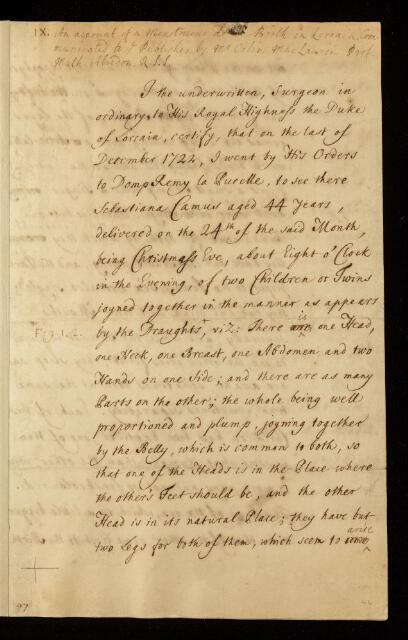 IX. An account of a Monstrous double Birth in Lorrain, Com
municated to ye Publisher by Mr Colin MacLaurin Prof.
Math. Aberdon. R.S.S.
I the underwritten, Surgeon in
ordinary to His Royal Highness the Duke
of Lorrain, certify, that on the last of
December 1722, I went by His Orders
to Domp Remy la Pucelle, to see there
Sebastiana Camus aged 44 Years,
delivered on the 24th of the said Month,
being Christmass Eve, about Eight o'Clock
in the Evening, of two Children or Twins
joyned together in the manner as appears
Fig. 1. 2. by the Draughts, viz: There is are one Head,
one Neck, one Breast, one Abdomen and two
Hands on one Side; and there are as many
Parts on the other; the whole being well
proportioned and plump, joyning together
by the Belly, which is common to both, so
that one of the Heads is in the Place where
the others Feet should be, and the other
Head is in its natural Place; they have but
two Legs for both of them, which seem to arise
97